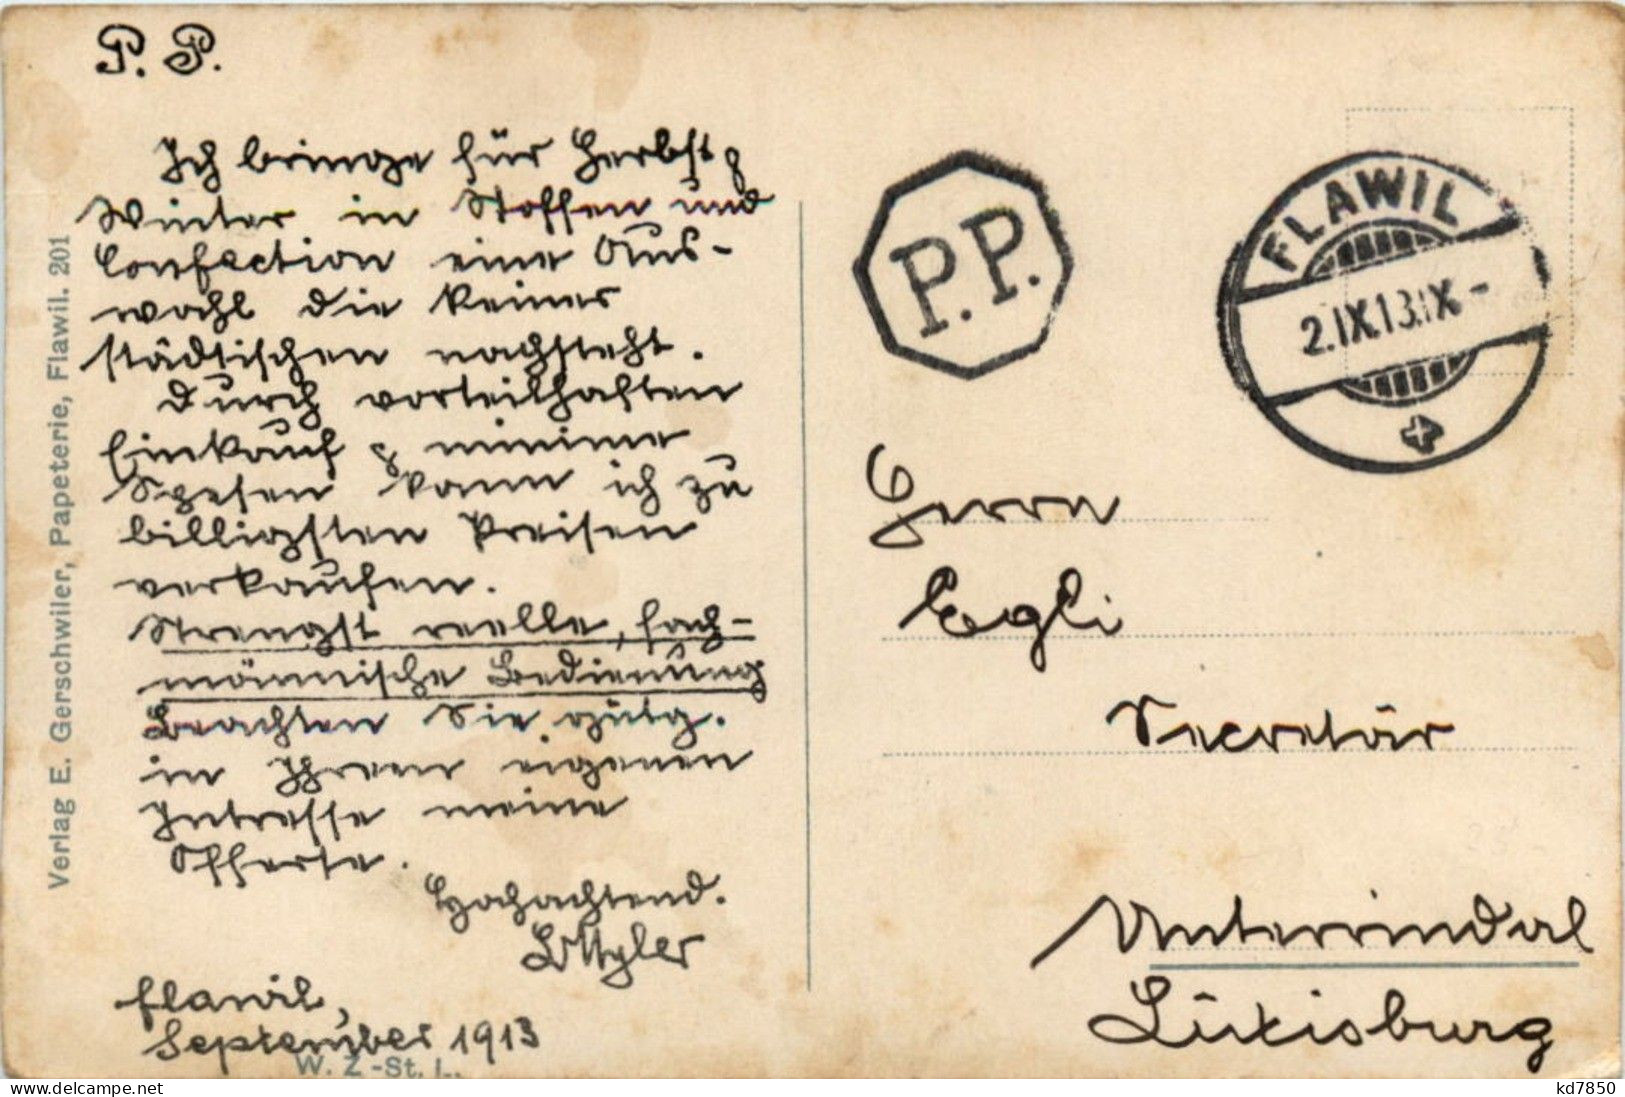 P. P.
Ich bringe für Herbst &
Winter in Stoffen und
Confection eine Aus-
wahl die keiner
städtischen nachsteht.
Durch vorteilhaften
Einkauf & minime
Spesen kann ich zu
billigsten Preisen
verkaufen.
Strengst reelle, fach-
männische Bedienung
Beachten Sie gütg.
in Ihrem eigenen
Intresse meine
Offerte.
Hochachtend.
Flawil,
September 1913
W. Z.-St. L.
Verlag E. Gerschwiler, Papeterie, Flawil. 201
P.P.
FLAWIL
2.IX.13.IX-
Herrn
Egli
Secretär
Unterrindal
Lütisburg
www.delcampe.net
kd7850